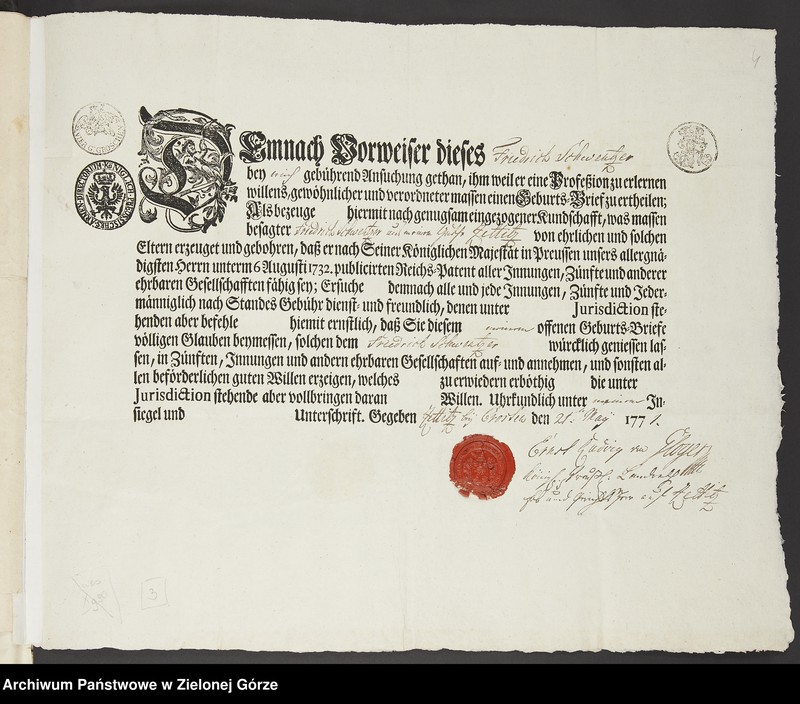 4
Demnach Vorweiser dieses Friedrich Schwentzer
bey mich gebührend Ansuchung gethan, ihm weil er eine Profeßion zu erlernen
willens, gewöhnlicher und verordneter massen einen Geburts-Brief zu ertheilen;
Als bezeuge hiermit nach genugsam eingezogener Kundschafft, was massen
besagter Friedrich Schwentzer aus meinem Guthe Zettitz von ehrlichen und solchen
Eltern erzeuget und gebohren, daß er nach Seiner Königlichen Majestät in Preussen unsers allergnä-
digsten Herrn unterm 6 Augusti 1732. publicirten Reichs-Patent aller Innungen, Zünfte und anderer
ehrbaren Gesellschafften fähig sey; Ersuche demnach alle und jede Innungen, Zünfte und Jeder-
männiglich nach Standes Gebühr dienst- und freundlich, denen unter Jurisdiction ste-
henden aber befehle hiemit ernstlich, daß Sie diesem meinem offenen Geburts-Briefe
völligen Glauben beymessen, solchen dem Friedrich Schwentzer würcklich geniessen las-
sen, in Zünften, Innungen und andern ehrbaren Gesellschaften auf- und annehmen, und sonsten al-
len beförderlichen guten Willen erzeigen, welches zu erwiedern erböthig die unter
Jurisdiction stehende aber vollbringen daran Willen. Uhrkundlich unter meinem In-
siegel und Unterschrift. Gegeben Zettitz bey Crossen den 21. May 1771.
Ernst Ludwig von
Königl. Preuß. Landrath
und auf Zettitz
3
Archiwum Państwowe w Zielonej Górze